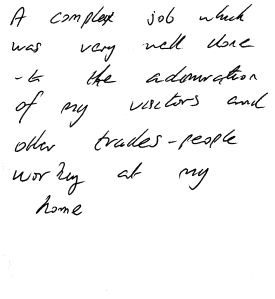 A complex job which
was very well done
- to the admiration
of my visitors and
other trades-people
working at my
home